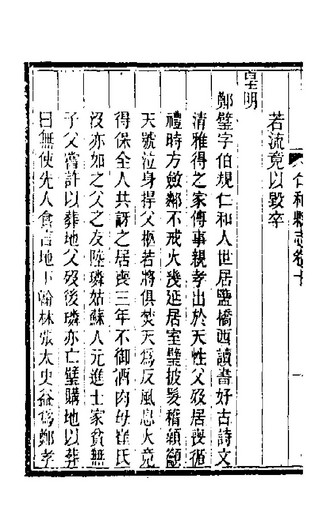 仁和縣志卷十
若流竟以毀卒
皇明
鄭璧字伯規仁和人世居鹽橋西讀書好古詩文
清雅得之家傳事親孝出於天性父歿居喪循
禮時方斂鄰不戒火幾延居室璧披髮稽顙籲
天號泣身捍父柩若將俱焚天為反風息火竟
得保全人共訝之居喪三年不御酒肉母崔氏
沒亦如之父之友陸璘姑蘇人元進士家貧無
子父嘗許以葬地父歿後璘亦亡璧購地以葬
曰無使先人食言地下翰林張太史益為鄭孝